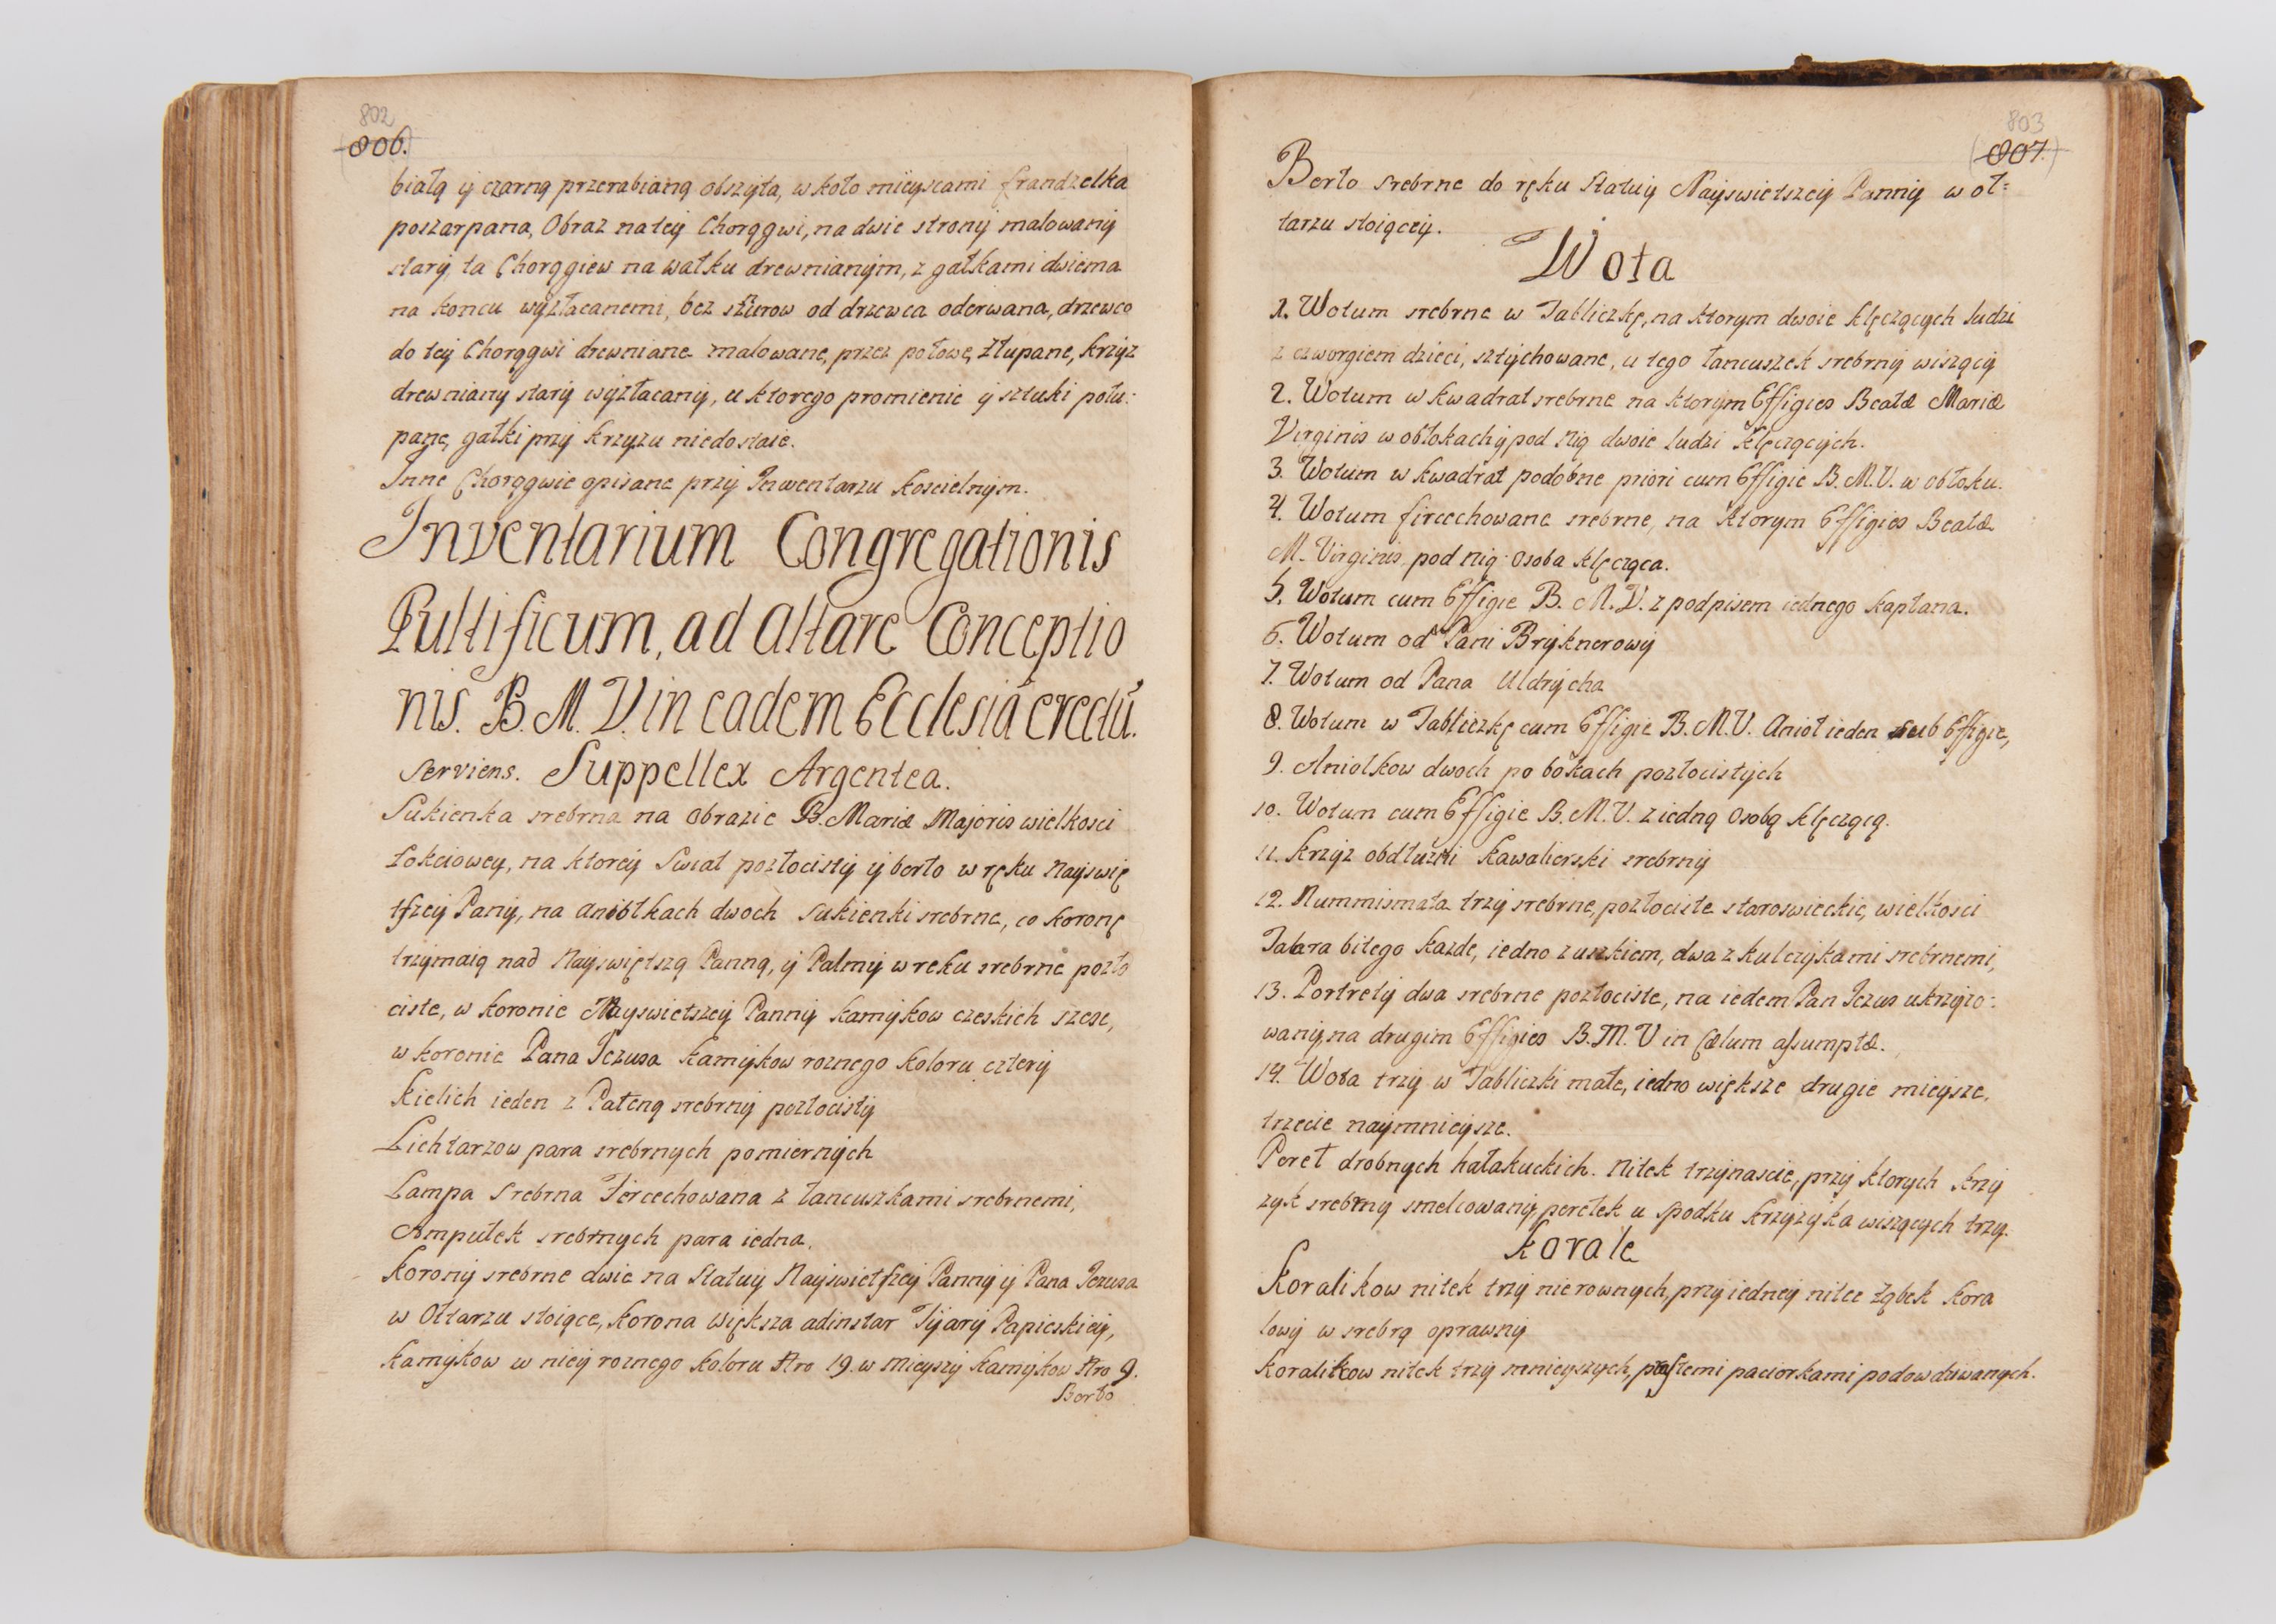 802
806.
białą ÿ czarną przerabianą obszÿta, w koło mieÿscami frandzelka
poszarpana, Obraz na teÿ Chorągwi, na dwie stronÿ malowanÿ
starÿ, ta Chorągiew na wałku drewnianÿm, z gałkami dwiema
na koncu wÿzłacanemi, bez sznurow od drzewca oderwana, drzewco
do teÿ Chorągwi drewniane malowane, przez połowę złupane, krzÿz
drewnianÿ starÿ wÿzłacanÿ, u ktorego promienie ÿ sztuki połu:
pane, gałki przÿ krzÿzu niedostaie.
Inne Chorągwie opisane przÿ Inwentarzu Koscielnÿm.
Inventarium Congregationis
Pultificum, ad Altare Conceptio
nis. B. M. V. in eadem Ecclesiá erectū.
serviens. Suppellex Argentea.
Sukienka srebrna na Obrazie B. Mariæ Majoris wielkosci
Łokciowey, na ktoreÿ Swiat pozłocistÿ ÿ berło w ręku Nayswię
tszeÿ Panÿ, na aniołkach dwoch sukienki srebrne, co koronę
trzÿmaią nad Nayswiętszą Panną, ÿ Palmÿ w reku srebrne pozło
ciste, w koronie Nayswietszeÿ Pannÿ kamÿkow czeskich szesc,
w koronie Pana Jezusa kamÿkow roznego koloru czterÿ
Kielich ieden z Pateną srebrnÿ pozłocistÿ
Lichtarzow para srebrnych pomiernÿch
Lampa srebrna fircechowana z łancuszkami srebrnemi,
Ampułek srebrnych para iedna.
Koronÿ srebrne dwie na Statuÿ Nayswietszeÿ Pannÿ ÿ Pana Jezusa
w Ołtarzu stoiące, korona większa adinstar Tÿarÿ Papieskieÿ,
kamÿkow w nieÿ roznego koloru Nro 19. w mieÿszÿ kamÿkow Nro 9.
Berło
803
807.
Berło srebrne do ręku Statuÿ Nayswietszeÿ Pannÿ w oł=
tarzu stoiąceÿ.
Wota
1. Wotum srebrne w Tabliczkę, na ktorym dwoie klęczących ludzi
z czworgiem dzieci, sztÿchowane, u tego łancuszek srebrnÿ wiszącÿ
2. Wotum w kwadrat srebrne na ktorÿm Effigies Beatæ Mariæ
Virginis w obłokach ÿ pod nią dwoie ludzi klęczącÿch.
3. Wotum w kwadrat podobne priori cum Effigie B. M. V. w obłoku.
4. Wotum fircechowane srebrne, na ktorym Effigies Beatæ
M. Virginis, pod nią osoba klęcząca.
5. Wotum cum Effigie B. M. V. z podpisem iednego kapłana.
6. Wotum od Pani Brÿknerowÿ
7. Wotum od Pana Uldrÿcha
8. Wotum w Tabliczkę cum Effigie B. M. V. Anioł ieden sub Effigie,
9. Aniolkow dwoch po bokach pozłocistÿch
10. Wotum cum Effigie B. M. V. z iedną osobą klęczącą.
11. Krzÿz obdłużni kawalierski srebrnÿ
12. Nummismata trzÿ srebrne, pozłociste staroswieckie, wielkosci
Talara bitego kazde, iedno z uszkiem, dwa z kulczÿkami srebrnemi,
13. Portretÿ dwa srebrne pozłociste, na iedem Pan Jezus ukrzÿzo:
wanÿ, na drugim Effigies B. M. V in Cælum assumptæ.
14. Wota trzÿ w Tabliczki małe, iedno większe drugie mieÿsze,
trzecie naÿmnieÿsze.
Pereł drobnych hałakuckich. Nitek trzÿnascie, przÿ ktorÿch krzÿ
zÿk srebrnÿ smelcowanÿ, perełek u spodku krzÿzÿka wiszącÿch trzÿ.
Korale
Koralikow nitek trzÿ nierownÿch, przÿ iedneÿ nitce ząbek kora
lowÿ w srebrą oprawnÿ
Koralikow nitek trzÿ mnieyszÿch, prostemi paciorkami podowduwanÿch.